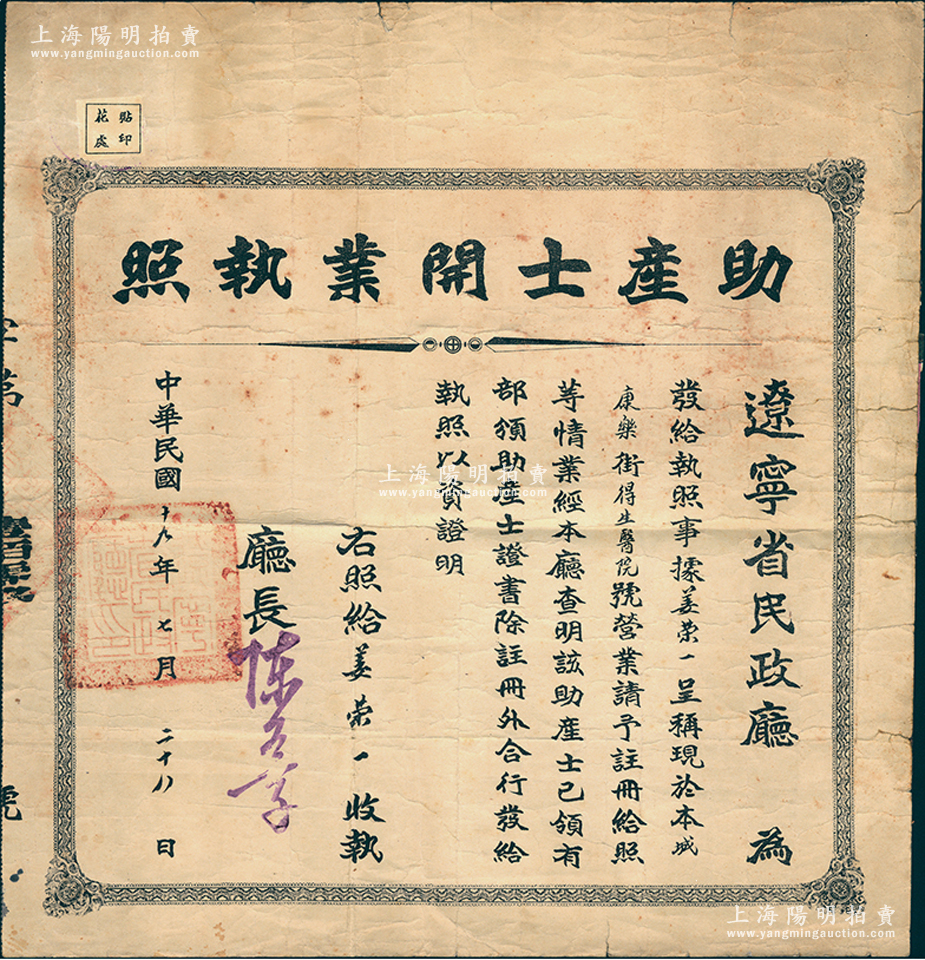 上海陽明拍賣
www.yangmingauction.com
貼印
花處
助產士開業執照
遼寧省民政廳 為
發給執照事據姜荣一呈稱現於本城
康樂街得生醫院號營業請予註冊給照
等情業經本廳查明該助產士已領有
部頒助產士證書除註冊外合行發給
執照以資證明
右照給姜荣一收執
廳長陳
中華民國十九年七月二十八日
字第
號
上海陽明拍賣
www.yangmingauction.com
上海陽明拍賣
www.yangmingauction.com